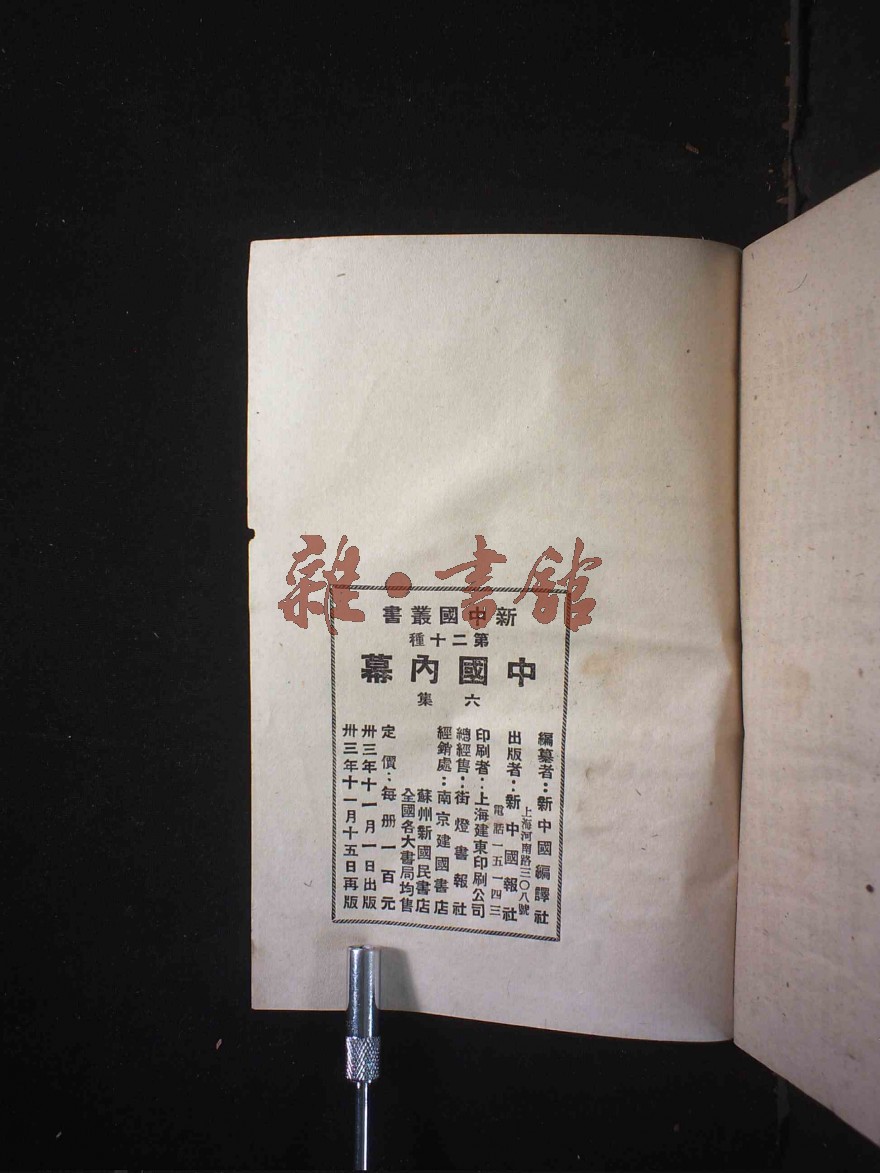 雜·書館
新中國叢書
第二十種
中國內幕
六集
編纂者：新中國編譯社
上海河南路三〇八號
出版者：新中國報社
電話一五一四三
印刷者：上海建東印刷公司
總經售：街燈書報社
經銷處：南京建國書店
蘇州新國民書店
全國各大書局均售
定價：每册一百元
卅三年十一月一日出版
卅三年十一月十五日再版